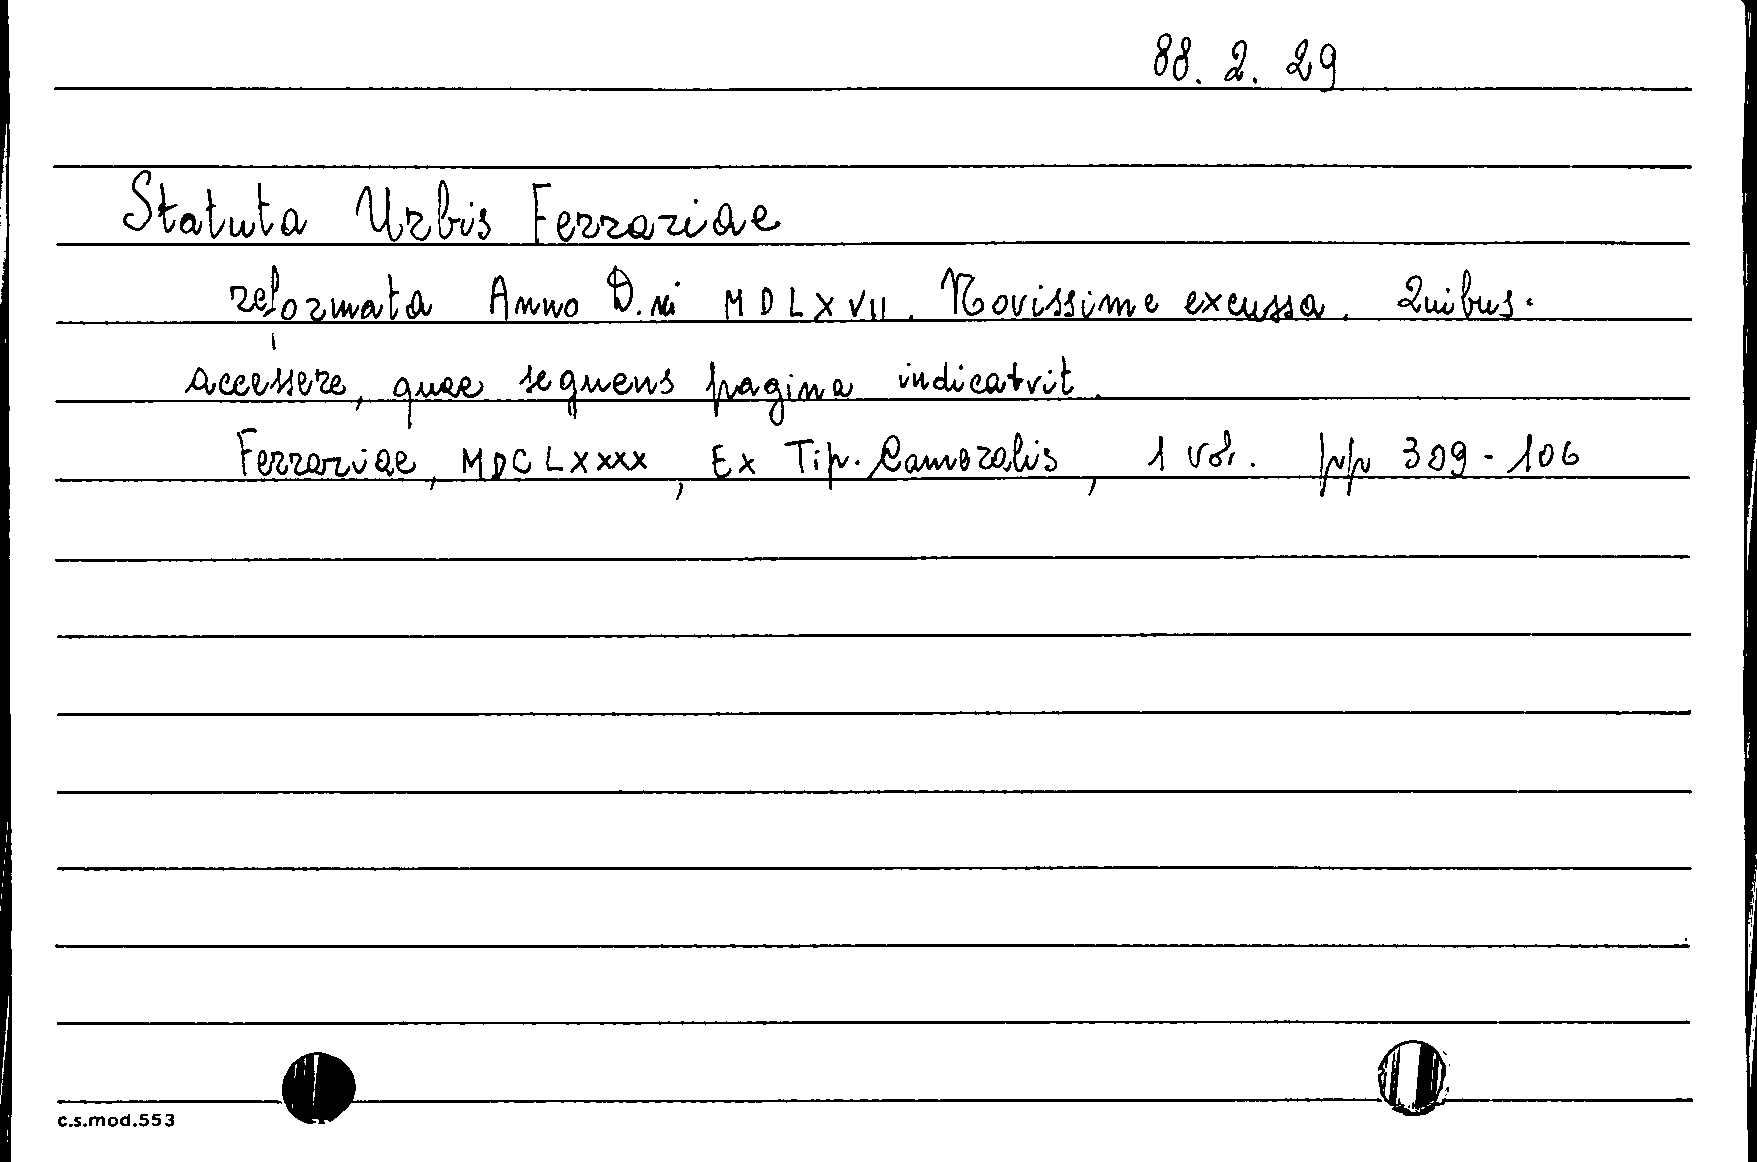 88. 2. 29
Statuta Urbis Ferrariae
reformata Anno D.ni MDLXVII. Novissime excussa. Quibus.
accessere, quae sequens pagina indicatvit.
Ferrariae, MDCLXXXX, Ex Tip. Cameralis, 1 vol. pp 309-106
c.s.mod.553